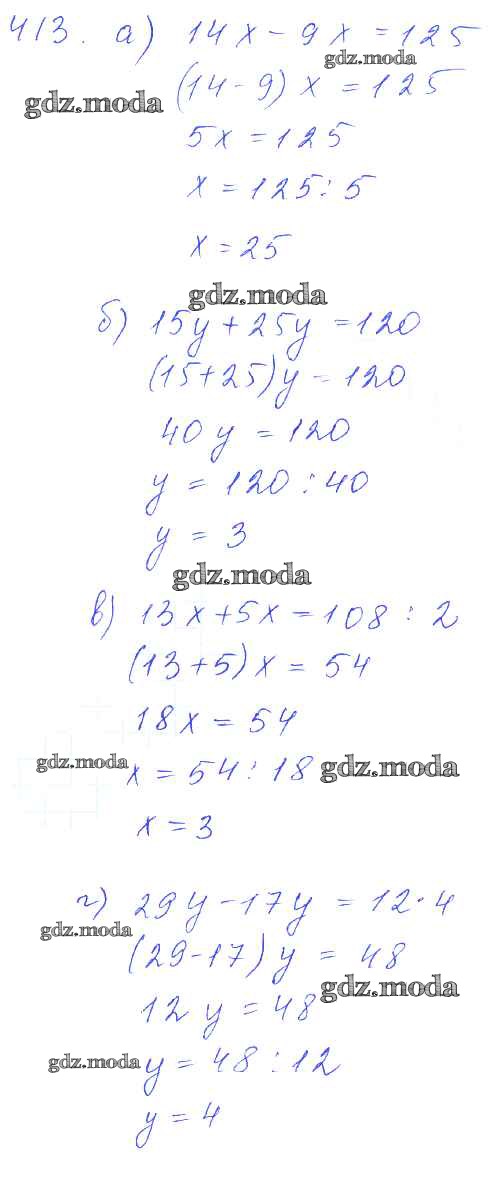 413. а) 14x - 9x = 125
gdz.moda
(14-9) x = 125
gdz.moda
5x = 125
x = 125 : 5
x = 25
gdz.moda
б) 15y + 25y = 120
(15+25)y = 120
40y = 120
y = 120 : 40
y = 3
gdz.moda
в) 13x + 5x = 108 : 2
(13+5)x = 54
18x = 54
gdz.moda
x = 54 : 18 gdz.moda
x = 3
г) 29y - 17y = 12 · 4
gdz.moda
(29-17) y = 48
gdz.moda
12y = 48
gdz.moda
y = 48 : 12
y = 4